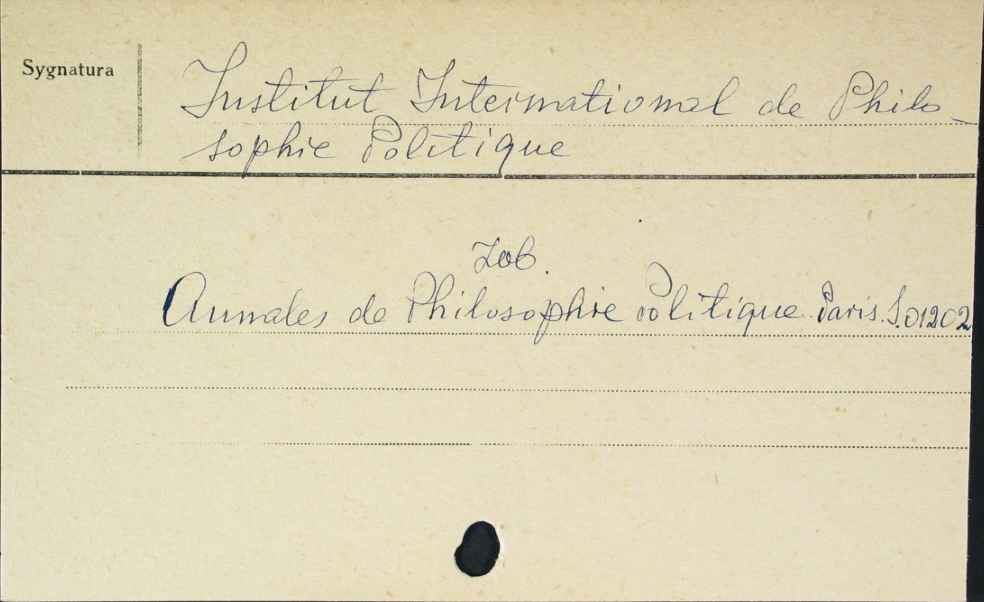 Sygnatura
Institut International de Philo-
sophie Politique
Zob.
Annales de Philosophie Politique. Paris. S.01202